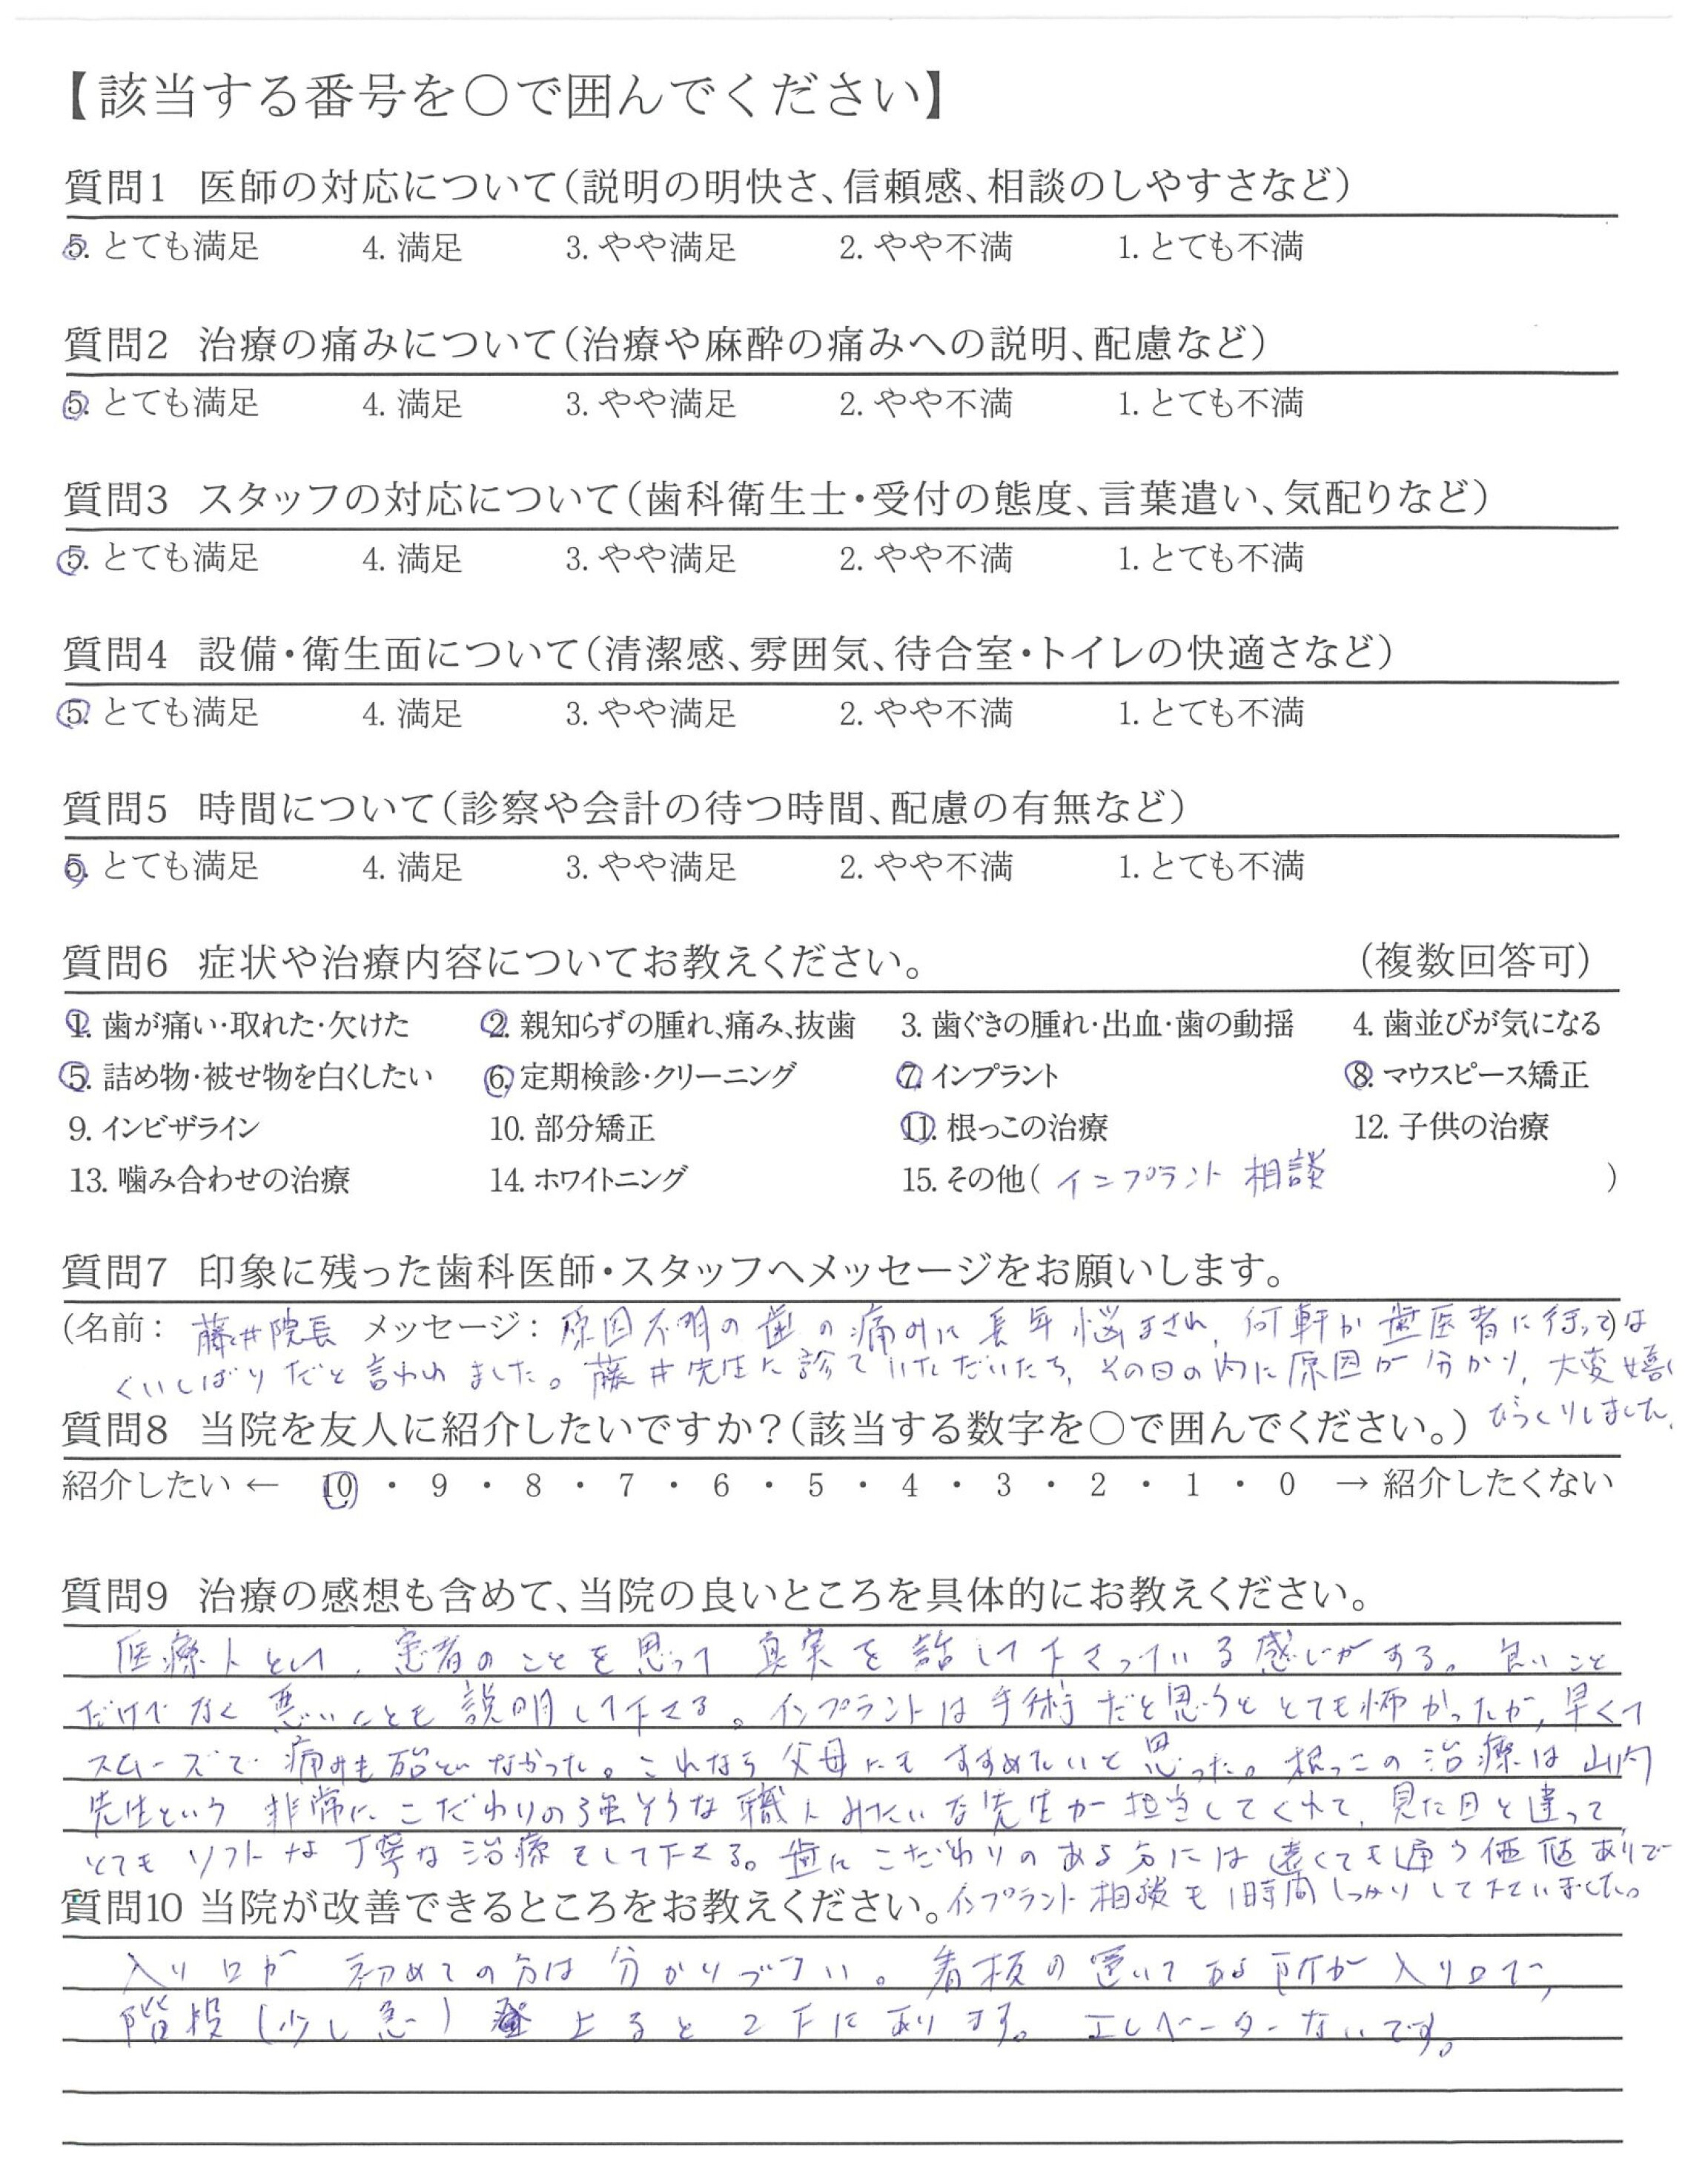 【該当する番号を〇で囲んでください】
質問1 医師の対応について(説明の明快さ、信頼感、相談のしやすさなど)
5. とても満足 4. 満足 3. やや満足 2. やや不満 1. とても不満
質問2 治療の痛みについて(治療や麻酔の痛みへの説明、配慮など)
5. とても満足 4. 満足 3. やや満足 2. やや不満 1. とても不満
質問3 スタッフの対応について(歯科衛生士・受付の態度、言葉遣い、気配りなど)
5. とても満足 4. 満足 3. やや満足 2. やや不満 1. とても不満
質問4 設備・衛生面について(清潔感、雰囲気、待合室・トイレの快適さなど)
5. とても満足 4. 満足 3. やや満足 2. やや不満 1. とても不満
質問5 時間について(診察や会計の待つ時間、配慮の有無など)
5. とても満足 4. 満足 3. やや満足 2. やや不満 1. とても不満
質問6 症状や治療内容についてお教えください。 (複数回答可)
1. 歯が痛い・取れた・欠けた 2. 親知らずの腫れ、痛み、抜歯 3. 歯ぐきの腫れ・出血・歯の動揺 4. 歯並びが気になる
5. 詰め物・被せ物を白くしたい 6. 定期検診・クリーニング 7. インプラント 8. マウスピース矯正
9. インビザライン 10. 部分矯正 11. 根っこの治療 12. 子供の治療
13. 噛み合わせの治療 14. ホワイトニング 15. その他( インプラント 相談 )
質問7 印象に残った歯科医師・スタッフへメッセージをお願いします。
(名前: 藤井院長 メッセージ: 原因不明の歯の痛みに長年悩まされ、何軒か歯医者に行って)は
くいしばりだと言われました。藤井先生に診ていただいたら、その日の内に原因が分かり、大変嬉
質問8 当院を友人に紹介したいですか?(該当する数字を〇で囲んでください。) びっくりしました。
紹介したい ← 10 ・ 9 ・ 8 ・ 7 ・ 6 ・ 5 ・ 4 ・ 3 ・ 2 ・ 1 ・ 0 → 紹介したくない
質問9 治療の感想も含めて、当院の良いところを具体的にお教えください。
医療人として、患者のことを思って真実を話して下さっている感じがする。良いこと
だけでなく悪いことも説明して下さる。インプラントは手術だと思うととても怖かったが、早くて
スムーズで痛みも殆どなかった。これなら父母にもすすめたいと思った。根っこの治療は山内
先生という非常にこだわりの強そうな職人みたいな先生が担当してくれて、見た目と違って
とてもソフトな丁寧な治療をして下さる。歯にこだわりのある方には遠くても通う価値ありで
質問10 当院が改善できるところをお教えください。インプラント相談も1時間しっかりして下さいました。
入り口が初めての方は分かりづらい。看板の置いてある所が入り口で、
階段(少し急) 上ると2Fにあります。エレベーターないです。